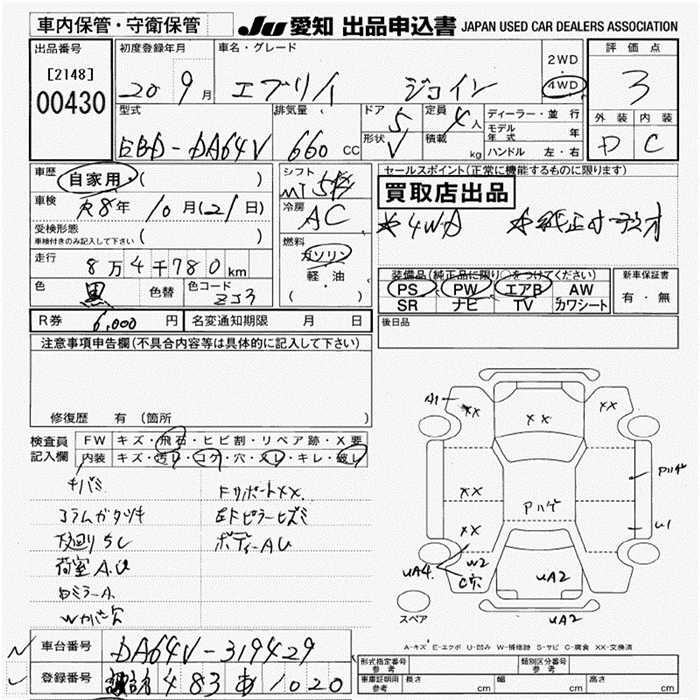 車内保管・守衛保管
JU 愛知 出品申込書 JAPAN USED CAR DEALERS ASSOCIATION
出品番号
[2148]
00430
初度登録年月
20 9月
車名・グレード
エブリィ ジョイン
2WD
4WD
評価点
3
外装 内装
D C
型式
EBD-DA64V
排気量
660 CC
ドア 5
形状 V
定員 4人
積載 kg
ディーラー・並行
モデル年式 年
ハンドル 左・右
車歴 自家用・( )
車検 R8年 10月(21日)
受検形態
車検付きのみ記入して下さい ( )
走行 8万4千780km
色 黒 色替 色コード ZJ3
シフト MT 5速
冷房 AC
燃料
ガソリン
軽・油
( )
セールスポイント(正常に機能するものに限ります)
買取店出品
☆4WD ☆純正オーディオ
装備品(純正品に限り○をつけてください)
PS PW エアB AW
SR ナビ TV カワシート
新車保証書
有・無
R券 6,000 円 名変通知期限 月 日
後日品
注意事項申告欄(不具合内容等は具体的に記入して下さい)
修復歴 有(箇所 )
検査員記入欄
FW キズ・飛石・ヒビ割・リペア跡・X要
内装 キズ・汚レ・コゲ・穴・スレ・キレ・破レ
チバミ
コラムガタツキ
下廻りSC
荷室A.U
Bミラー A.
Wカバー欠
FサポートXX.
左Fピラーヒズミ
ボディーAU
A1
XX
XX
XX
Pハゲ
XX
Pハゲ
XX
U1
UA4
W2
C穴
UA2
UA2
スペア
A-キズ E-エクボ U-凹み W-補修跡 S-サビ C-腐食 XX-交換済
車台番号 DA64V-319429
登録番号 483 あ 1020
形式指定番号 参考
類別区分番号 参考
車庫証明用 参考 長さ cm 幅 cm 高さ cm